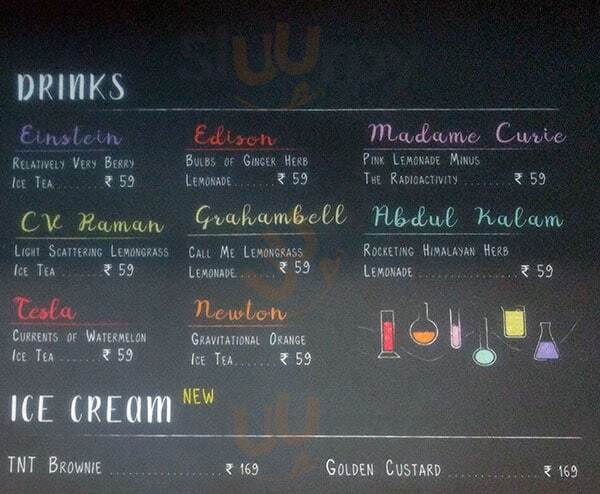 DRINKS
Einstein
RELATIVELY VERY BERRY
ICE TEA........₹ 59
Edison
BULBS OF GINGER HERB
LEMONADE........₹ 59
Madame Curie
PINK LEMONADE MINUS
THE RADIOACTIVITY........₹ 59
CV Raman
LIGHT SCATTERING LEMONGRASS
ICE TEA........₹ 59
Grahambell
CALL ME LEMONGRASS
LEMONADE........₹ 59
Abdul Kalam
ROCKETING HIMALAYAN HERB
LEMONADE........₹ 59
Tesla
CURRENTS OF WATERMELON
ICE TEA........₹ 59
Newton
GRAVITATIONAL ORANGE
ICE TEA........₹ 59
ICE CREAM NEW
TNT BROWNIE........₹ 169
GOLDEN CUSTARD........₹ 169